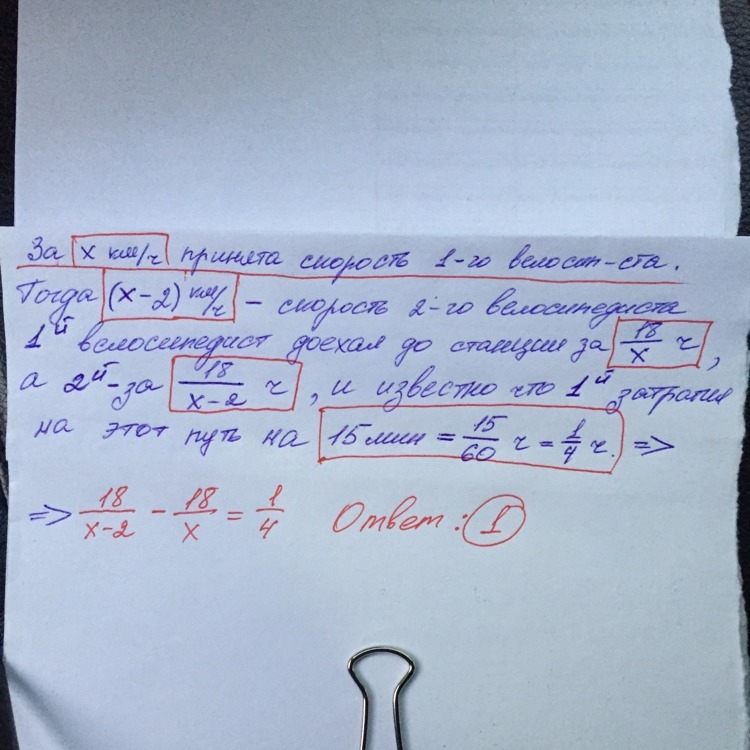 За x км/ч принята скорость 1-го велосип-ста.
Тогда (x-2) км/ч – скорость 2-го велосипедиста
1й велосипедист доехал до станции за 18/x ч,
а 2й-за 18/x-2 ч, и известно что 1й затратил
на этот путь на 15 мин = 15/60 ч = 1/4 ч. =>
=> 18/x-2 - 18/x = 1/4 Ответ: 1